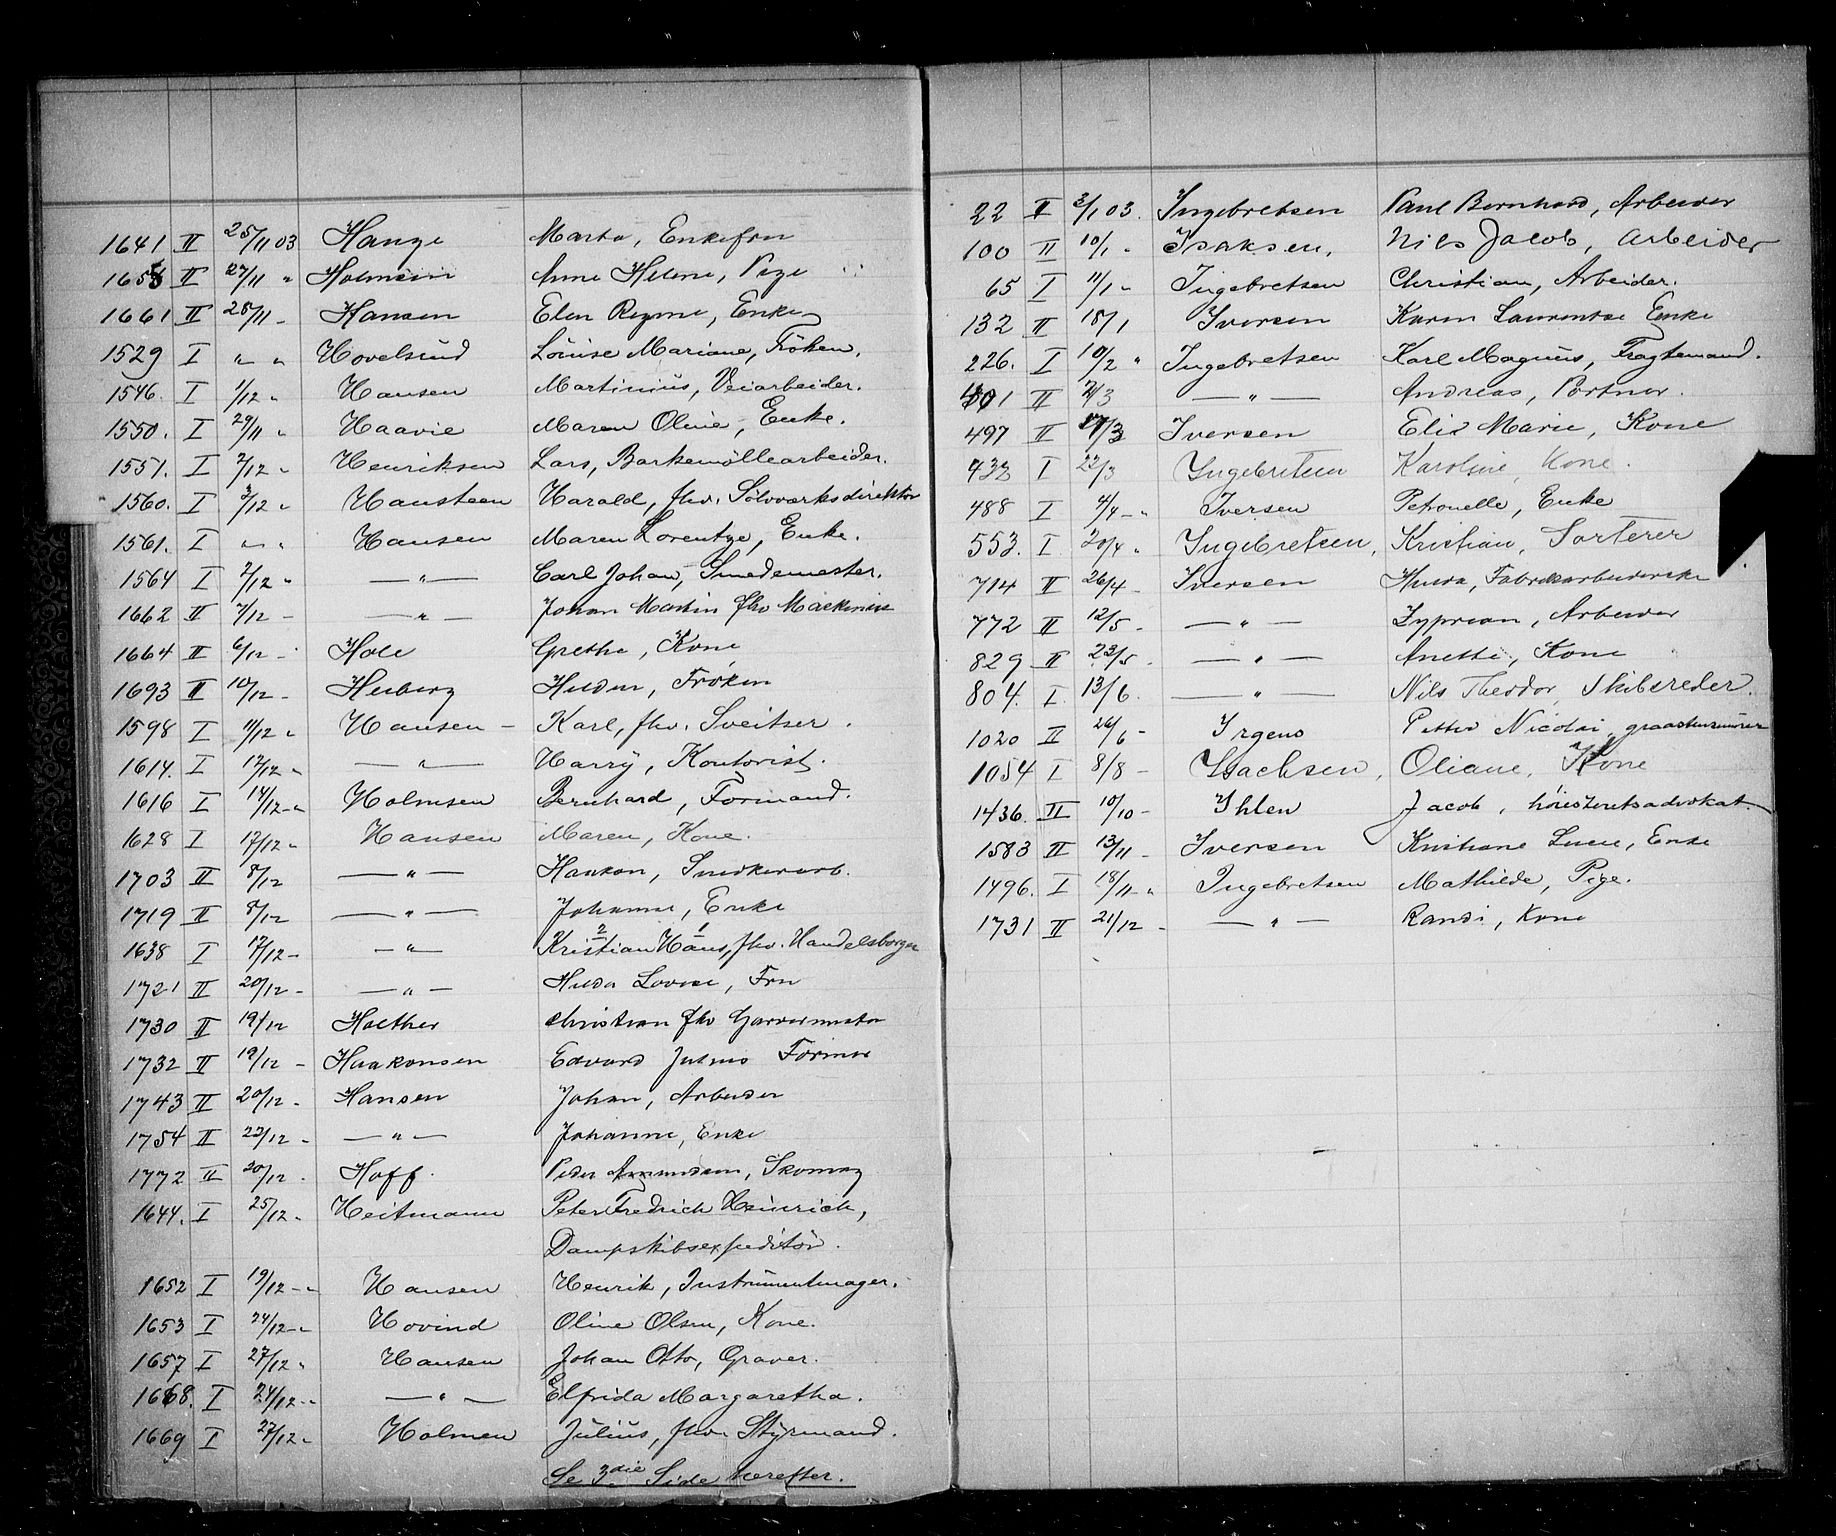 1641 II 25/11 03 Hauge Marta, Enkefru
1655 II 27/11 " Holmsen Anne Helene, Pige
1661 II 28/11 - Hansen Elen Regine, Enke
1529 I " " Hovelsrud Louise Mariane, Frøken.
1546. I 1/12 " Hansen Martinius, Veiarbeider.
1550. I 29/11 " Haavie Maren Oline, Enke.
1551. I 2/12 " Henriksen Lars, Barkemöllearbeider.
1560. I 3/12 " Hansteen Harald, fhv. Sölvværksdirektör
1561. I " " Hansen Maren Lorentze, Enke.
1564 I 2/12 " — " — Carl Johan, Smedemester.
1662 II 7/12 - — " — Johan Martin fhv Maskinist
1664 II 6/12 - Hole Grethe, Kone
1693 II 10/12 - Heiberg Huldur, Frøken
1598 I 11/12 " Hansen - Karl, fhv. Sveitser.
1614. I 12/12 " — " — Harry, Kontorist.
1616 I 14/12 - " Holmsen Bernhard, Formand.
1628 I 17/12 " Hansen Maren, Kone.
1703 II 8/12 — " — Haakon, Snedkerarb.
1719 II 8/12 — " — Johanne, Enke
1638 I 17/12 - — " — Kristian 2 Hans 1, fhv. Handelsborger
1721 II 20/12 - — " — Hulda Lovise, Fru
1730 II 19/12 Holther Christian fhv Garvermester
1732 II 19/12 - Haakonsen Edvard Julius Former
1743 II 20/12 - Hansen Johan, Arbeider
1754 II 22/12 - — " — Johanne, Enke
1772 II 20/12 - Hoff. Peder Amundsen, Skomag
1644. I 25/12 " Heitmann Peter Fredrich Heinrich,
Dampskibsexpeditör.
1652 I 19/12 - " Hansen Henrik, Instrumentmager.
1653 I 24/12 - " Hovind Oline Olsen, Kone.
1657 I 27/12 " Hansen Johan Otto, Graver.
1668. I 24/12 - " — " — Elfrida Margaretha.
1669 I 27/12 " Holmen Julius, fhv. Styrmand.
Se 3die Side herefter.
22 II 3/1 03. Ingebretsen Paul Bernhard, Arbeider
100 II 10/1 " Isaksen, Nils Jacob, Arbeider
65 I 11/1 " Ingebretsen Christian, Arbeider.
132 II 18/1 Iversen Karen Laurentse Enke
226. I 10/2 " Ingebretsen Karl Magnus, Fragtemand.
401 II 2/3 — " — Andreas, Portner.
497 II 17/3 Iversen Elis Marie, Kone
432 I 22/3 Ingebretsen Karoline, Kone.
488 I 4/4 - " Iversen Petronelle, Enke
553. I 20/4 " Ingebretsen, Kristian, Sorterer
714 II 26/4 - Iversen Hulda, Fabrikarbeiderske
772 II 12/5 - — " — Zyprian, Arbeider
829 II 23/5 - — " — Anette, Kone
804. I 13/6 — " — Nils Theodor, Skibsreder.
1020 II 26/6 - Irgens Petter Nicolai, graastensmurer
1054 I 8/8 - Isachsen, Oliane, Kone
1436. II 10/10 - Ihlen Jacob, høiesteretsadvokat
1583 II 13/11 - Iversen Kristiane Lucie, Enke
1496. I 18/11 " Ingebretsen Mathilde, Pige.
1731 II 21/12 - — " — Randi, Kone